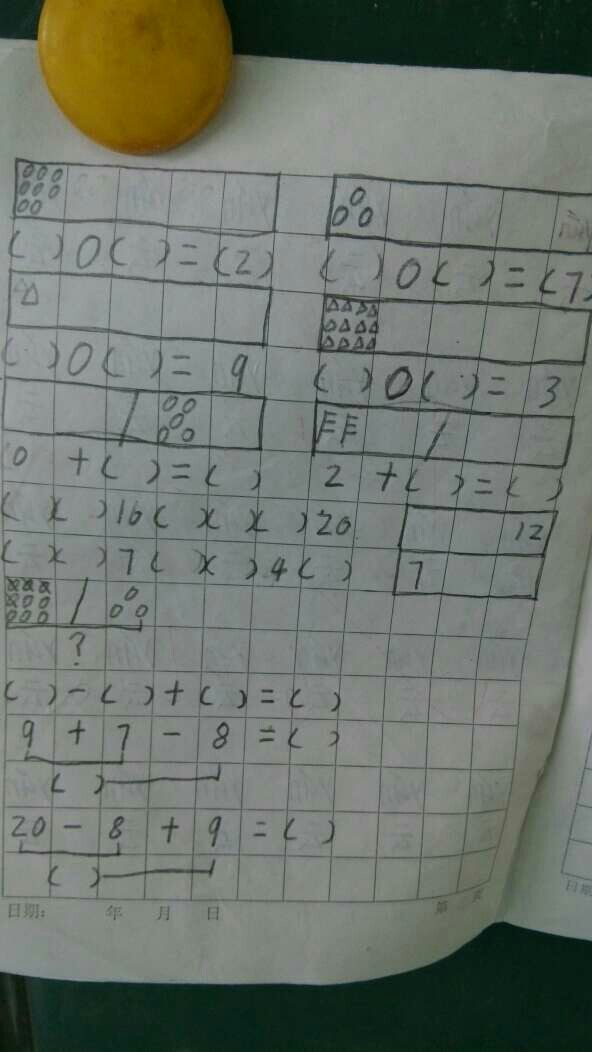 ( ) ○ ( ) = (2)
( ) ○ ( ) = (7)
( ) ○ ( ) = 9
( ) ○ ( ) = 3
0 + ( ) = ( )
2 + ( ) = ( )
( )( )16( )( )( )20
12
( )( )7( )( )4( )
7
?
( ) - ( ) + ( ) = ( )
9 + 7 - 8 = ( )
( )
20 - 8 + 9 = ( )
( )
日期: 年 月 日 第 页
日期